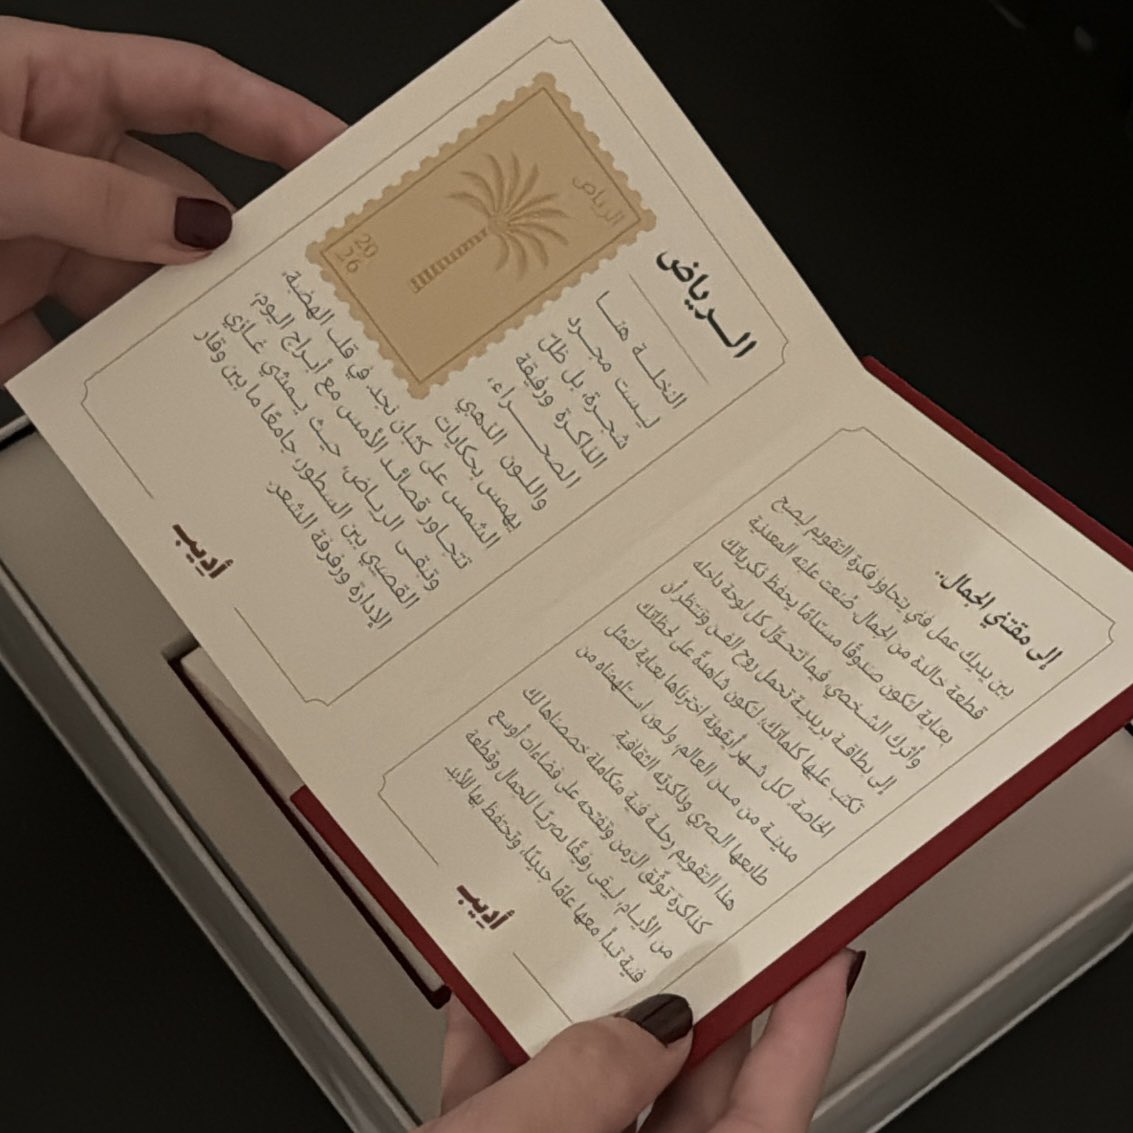 الرياض
2026
الـرياض
النخلـة هنـا
ليـست مجـرد
شجـرة، بل ظلّ
الذاكـرة ورفيقة
الصحـــراء،
واللـون الذهبي
يهمس بحكايات
الشمس على كثبان نجد. في قلب الهضبة،
تتجـاور قصائـد الأمس مع أبـراج اليوم،
وتبقـى الريـاض، حيـث يـمشي غـازي
القصيبي بين السطور، جامعًا ما بين وقار
الإدارة ورفرفة الشعر.
أديب
إلى مقتني الجمال..
بين يديك عمل فني يتجاوز فكرة التقويم ليصبح
قطعة خالدة من الجمال. صُنعت علبته المعدنية
بعناية لتكون صندوقًا مستدامًا يحفظ ذكرياتك
وأثرك الشخصي، فيما تتحوّل كل لوحة داخله
إلى بطاقـة بريديـة تحمل روح الفـن وتنتظر أن
تكتب عليها كلماتك، لتكون شاهدةً على لحظاتك
الخاصة. لكل شـهر أيقونة اخترناها بعناية لتمثل
مدينـة من مـدن العالم، ولـون استلهمناه من
طابعها البصري وذاكرته الثقافية.
هذا التقويم رحلـة فنية متكاملة خصصناها لك
كذاكرة توثّق الزمن وتفتحه على فضاءات أوسع
من الأيـام، ليبقى رفيقًا بصريًـا للجمال وقطعة
فنية تبدأ معها عامًا جديدًا، وتحتفظ بها للأبد.
أديب